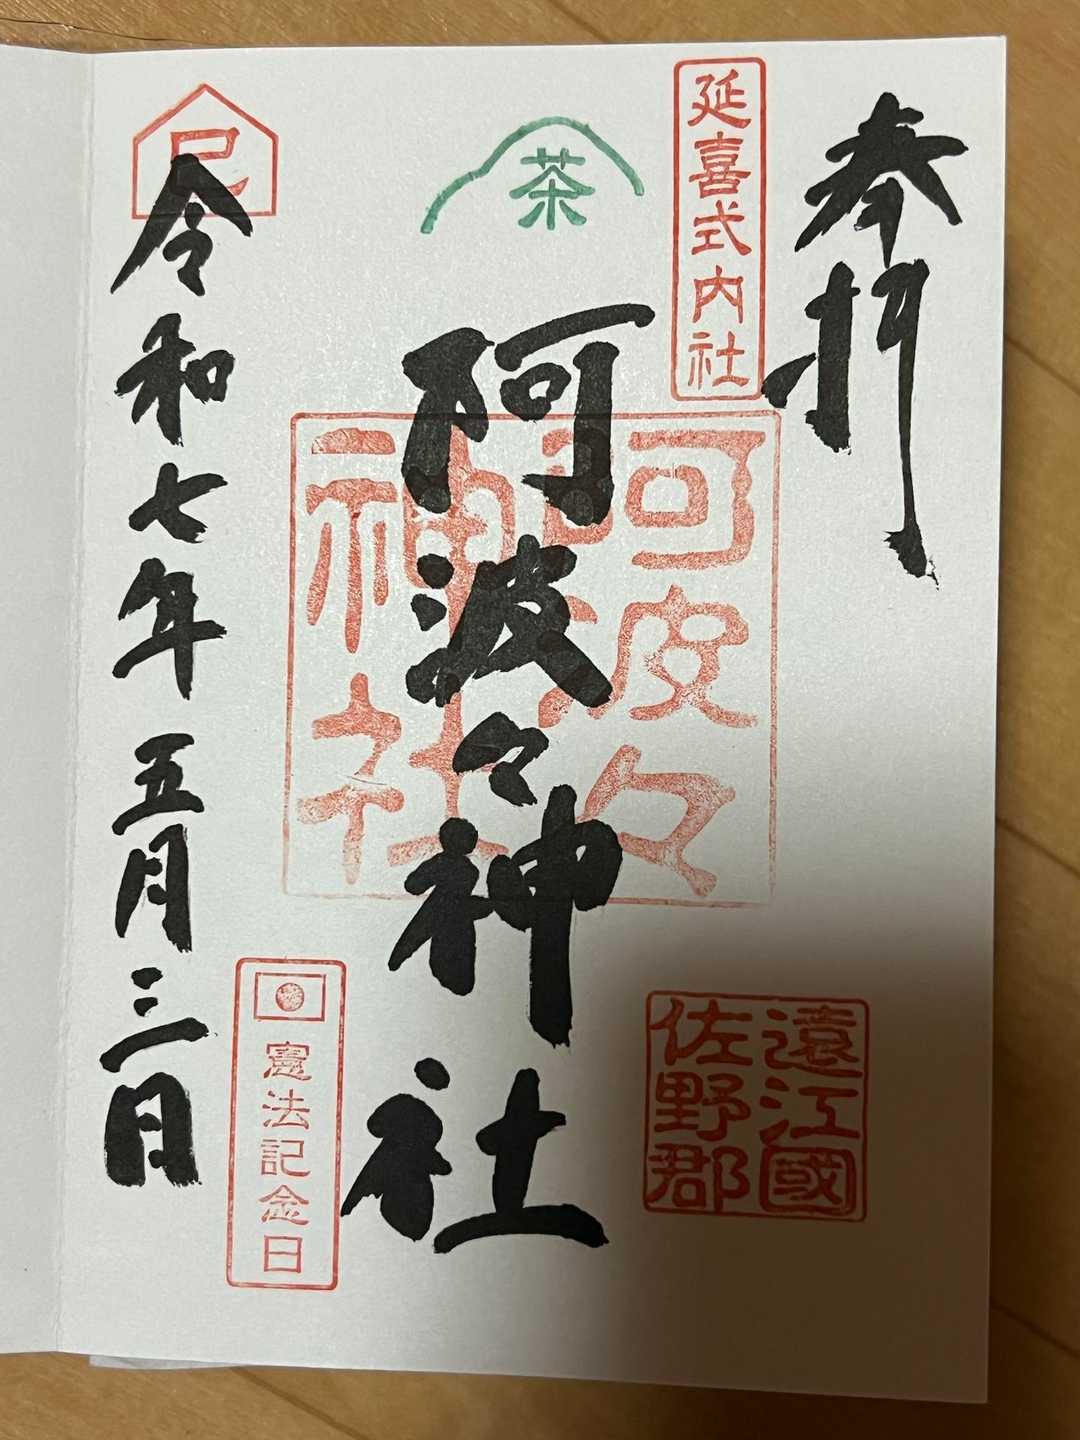 奉拝
延喜式内社
茶
阿波々神社
阿波々
神社
遠江國
佐野郡
巳
令和七年五月三日
憲法記念日